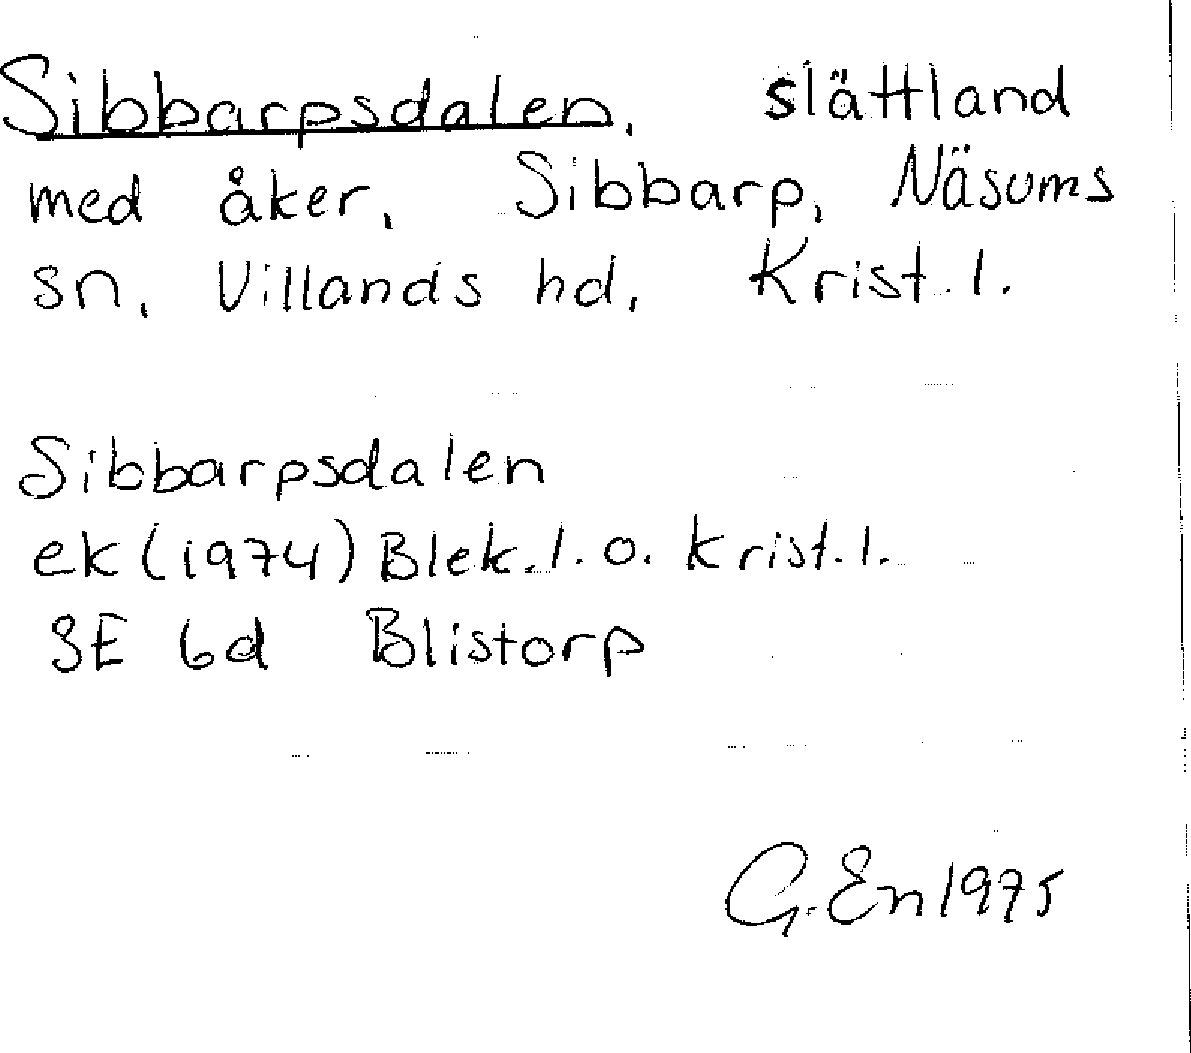 Sibbarpsdalen, slättland
med åker, Sibbarp, Näsums
sn, Villands hd, Krist. l.
Sibbarpsdalen
ek (1974) Blek. l. o. Krist. l.
3E 6d Blistorp
G. En 1975